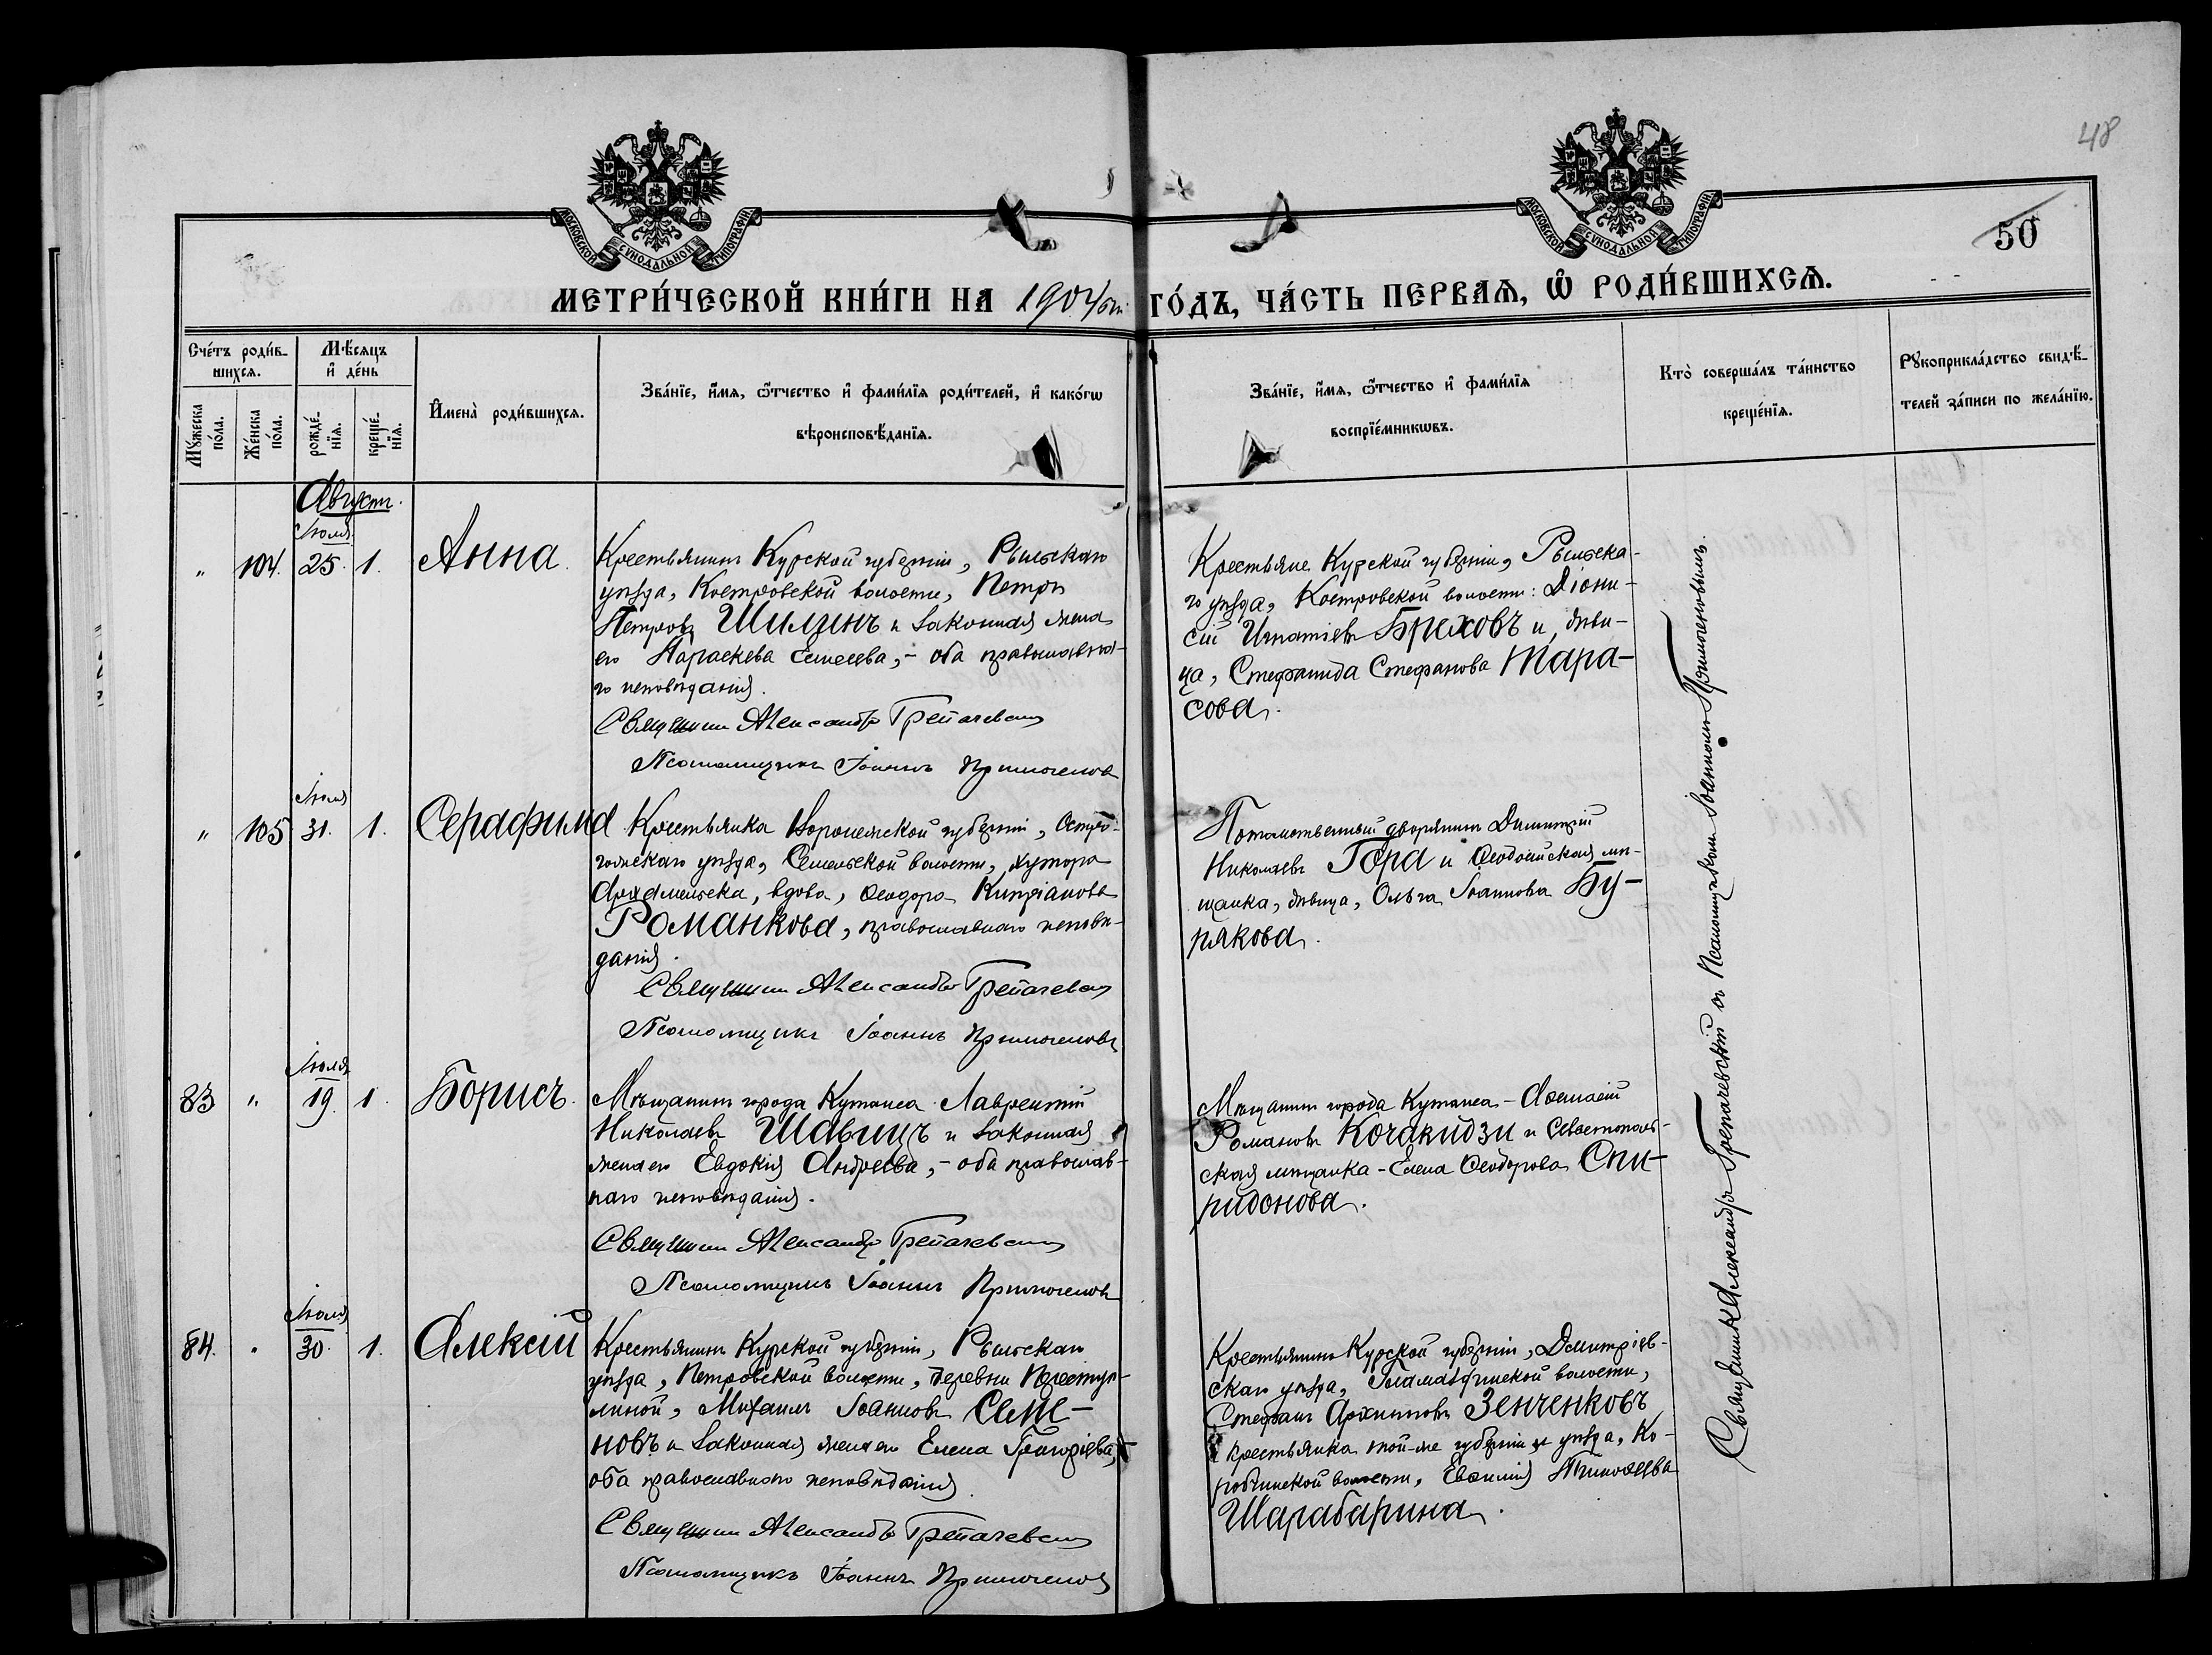 48
50
МОСКОВСКОЙ СѴНОДАЛЬНОЙ ТИПОГРАФІИ
МОСКОВСКОЙ СѴНОДАЛЬНОЙ ТИПОГРАФІИ
МЕТРИ́ЧЕСКОЙ КНИ́ГИ НА 1904 ГО́ДЪ, ЧА́СТЬ ПЕРВАЯ, Ѡ РОДИ́ВШИХСЯ.
Сче́тъ роди́в-
шихся.
Мѣ́сяцъ
и де́нь
Мꙋ́жеска
по́ла.
Же́нска
по́ла.
рожде́-
нїя.
креще́-
нїя.
Имена̀ роди́вшихся.
Зва́нїе, и́мя, ѻ́тчество и фами́лїя роди́телей, и како́гѡ
вѣроисповѣ́данїя.
Зва́нїе, и́мя, ѻ́тчество и фами́лїя
воспрїе́мникѡвъ.
Кто̀ соверша́лъ та́инство
креще́нїя.
Рꙋкоприкла́дство свидѣ́-
телей за́писи по жела́нїю.
Августъ.
Іюля
" 104. 25. 1. Анна.
Крестьянинъ Курской губерніи, Рыльскаго
уѣзда, Костровской волости, Петръ
Петровъ Шилинъ и законная жена
его Параскева Елисеева, - оба православна-
го исповѣданія.
Священникъ Александръ Грепачевскій
Псаломщикъ Іоаннъ Примогеновъ
Крестьяне Курской губерніи, Рыльска-
го уѣзда, Костровской волости: Діони-
сій Игнатіевъ Бреховъ и дѣви-
ца, Стефанида Стефанова Тара-
сова.
Іюля
" 105 31. 1. Серафима
Крестьянка Воронежской губерніи, Остро-
гожскаго уѣзда, волости, хутора
вдова, Ѳеодора Кипріанова
Романкова, православнаго исповѣ-
данія.
Священникъ Александръ Грепачевскій
Псаломщикъ Іоаннъ Примогеновъ
Потомственный дворянинъ Димитрій
Николаевъ Гора и Ѳеодосійская мѣ-
щанка, дѣвица, Ольга Іоаннова Бу-
рякова.
Іюля
83 " 19. 1. Борисъ.
Мѣщанинъ города Кутаиса Лаврентій
Николаевъ и законная
жена его Евдокія Андреева, - оба православ-
наго исповѣданія.
Священникъ Александръ Грепачевскій
Псаломщикъ Іоаннъ Примогеновъ
Мѣщанинъ города Кутаиса - Аѳанасій
Романовъ Кочакидзи и Севастополь-
ская мѣщанка - Елена Ѳеодорова Спи-
ридонова.
Іюля
84. " 30. 1. Алексій
Крестьянинъ Курской губерніи, Рыльскаго
уѣзда, Петровской волости, деревни
Михаилъ Іоанновъ Семе-
новъ и законная жена его Елена Георгіева,
оба православнаго исповѣданія.
Священникъ Александръ Грепачевскій
Псаломщикъ Іоаннъ Примогеновъ
Крестьянинъ Курской губерніи, Димитріев-
скаго уѣзда, волости,
Стефанъ Архиповъ Зенченковъ
и крестьянка той-же губерніи и уѣзда,
волости, Евѳимія Тимоѳеева
Шарабарина.
Священникъ Александръ Грепачевскій съ Псаломщикомъ Іоанномъ Примогеновымъ.